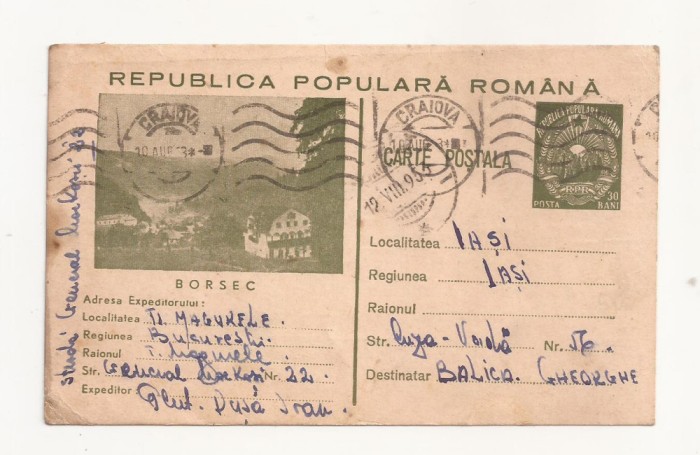 REPUBLICA POPULARĂ ROMÂNĂ
CRAIOVA
10 AUG
BORSEC
Adresa Expeditorului:
Localitatea TJ. MAGURELE.
Regiunea București.
Raionul T. Magurele
Str. General Nr. 22
Expeditor: Plut. Dușă Ioan.
strada General 22
CRAIOVA
10 AUG
CARTE POSTALA
12.VIII.953
REPUBLICA POPULARA ROMANA
RPR
POSTA 30 BANI
Localitatea IAȘI
Regiunea IAȘI
Raionul
Str. Cuza-Vodă Nr. 56.
Destinatar BALICA GHEORGHE